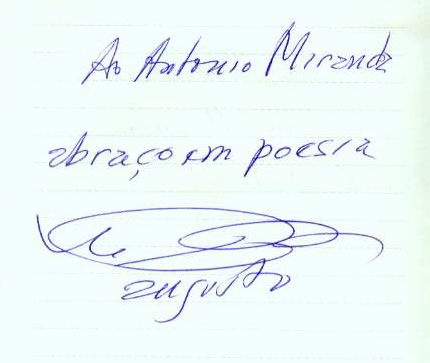 Ao Antonio Miranda
abraço em poesia
augusto